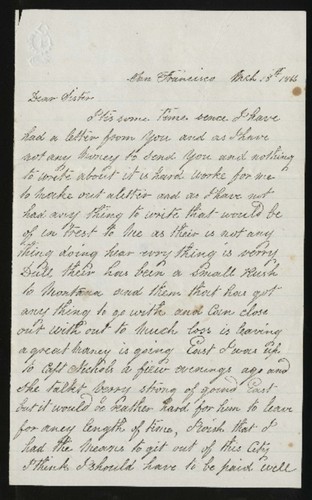 San Francisco March 18th 1866
Dear Sister
It is some time sence I have
had a letter from You and as I have
not any money to send You and nothing
to write about it is hard worke for me
to make out a letter and as I have not
had any thing to write that would be
of in trest to Me as their is not any
thing doing hear every thing is verry
Dull their has been a Small Rush
to Montana and them that has got
any thing to go with and can close
out with out to Much loss is leaving
a great maney is going East I was up
to Capt Nichols a few evenings ago and
She talks verry strong of going East
but it would be feather hard for him to leave
for aney length of time, I wish that I
had the means to git out of this City
I think I should have to be paid well